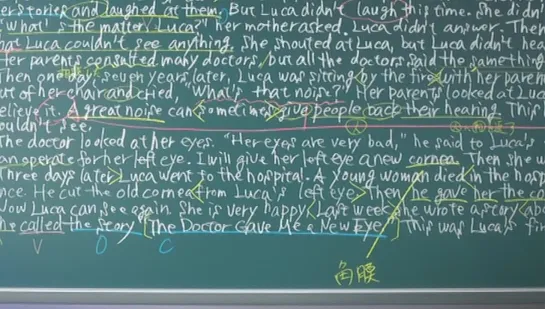 her stories and laughed at them. But Luca didn't (laugh) this time. She didn'
"What's the matter, Luca?" her mother asked. Luca didn't answer. Then
that Luca couldn't see anything. She shouted at Luca, but Luca didn't hea
Her parents consulted many doctors, but all the doctors said the same thing
Then one day, seven years later, Luca was sitting by the fire with her paren
out of her chair and cried, "What's that noise?" Her parents looked at Luca
believe it. A great noise can sometimes give people back their hearing. This
couldn't see.
The doctor looked at her eyes. "Her eyes are very bad," he said to Luca's
can operate for her left eye. I will give her left eye a new cornea. Then she w
Three days later, Luca went to the hospital. A young woman died in the hosp
once. He cut the old cornea from Luca's left eye. Then he gave her the co
Now Luca can see again. She is very happy. Last week she wrote a story abo
She called the story [The Doctor Gave Me a New Eye]. This was Luca's fir
V O C
角膜